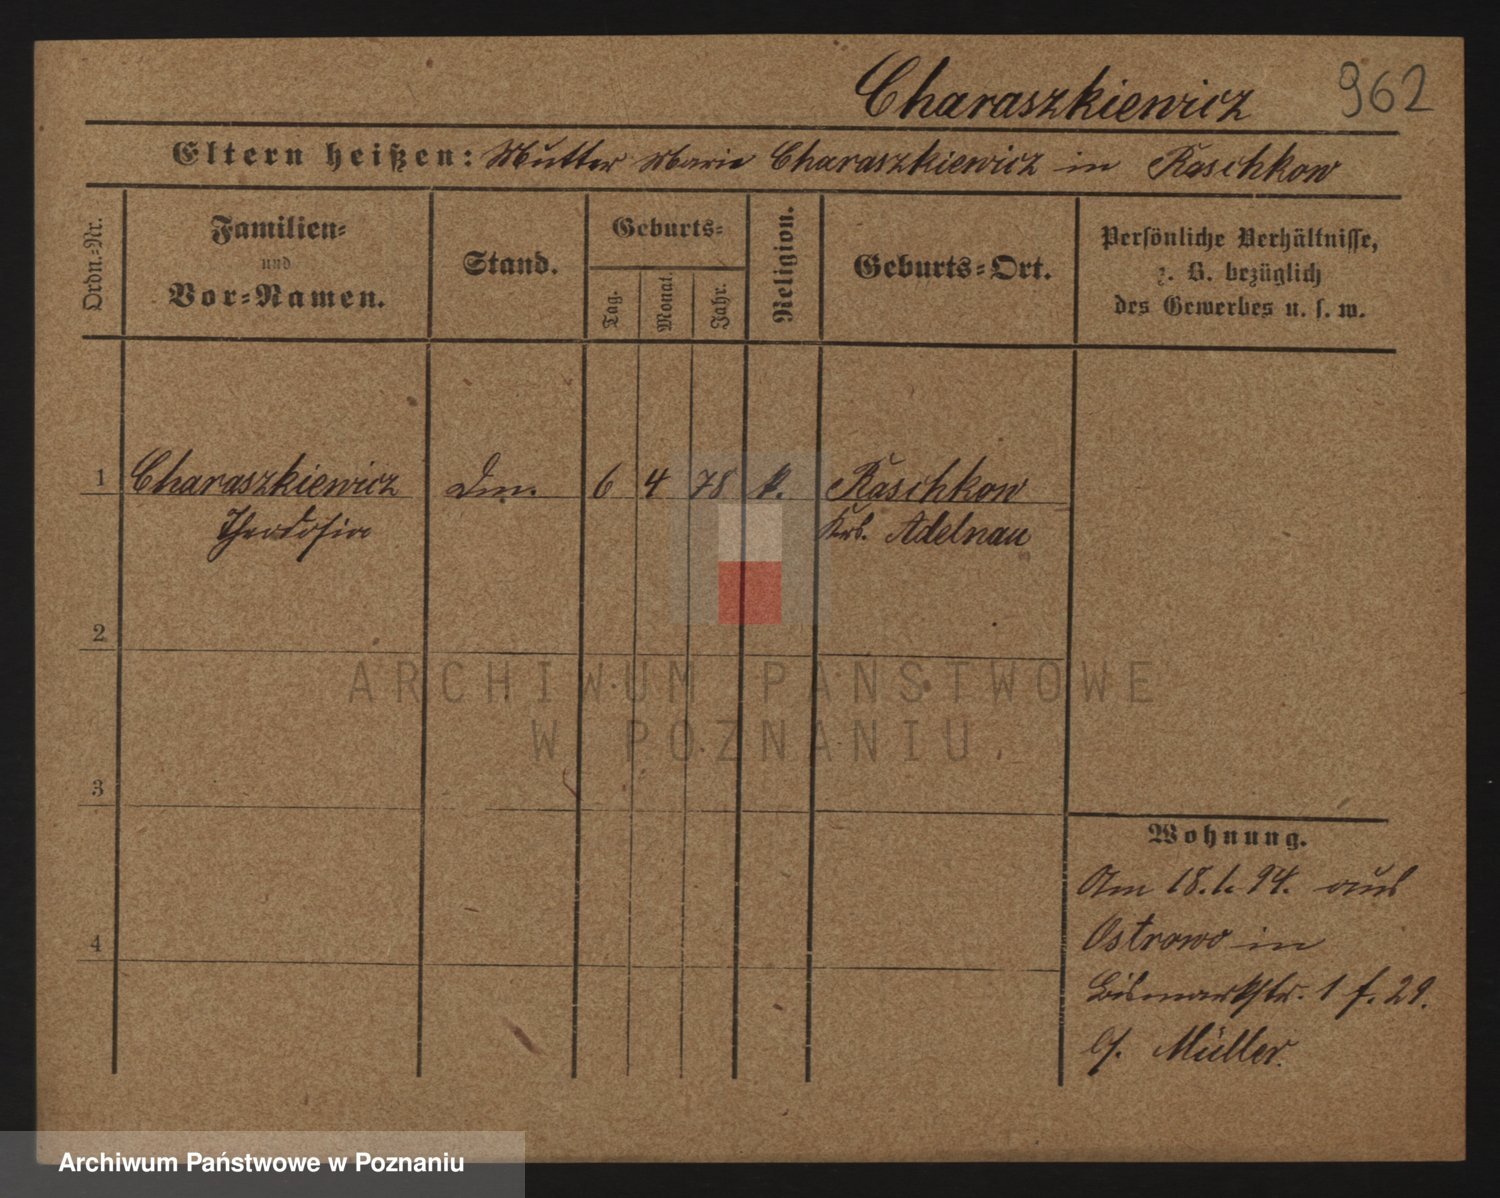 Charaszkiewicz 962
Eltern heißen: Mutter Marie Charaszkiewicz in Raschkow
Ordn.-Nr.
Familien-
und
Vor-Namen.
Stand.
Geburts-
Tag.
Monat.
Jahr.
Religion.
Geburts-Ort.
Persönliche Verhältnisse,
z. B. bezüglich
des Gewerbes u. s. w.
1 Charaszkiewicz 6 4 78 k. Raschkow
Theodosia Adelnau
2
3
4
Wohnung.
Am 18.1.94. aus
Ostrowo in
Bismarkstr. 1 f. 29.
b/. Müller.
ARCHIWUM PAŃSTWOWE
W POZNANIU
Archiwum Państwowe w Poznaniu